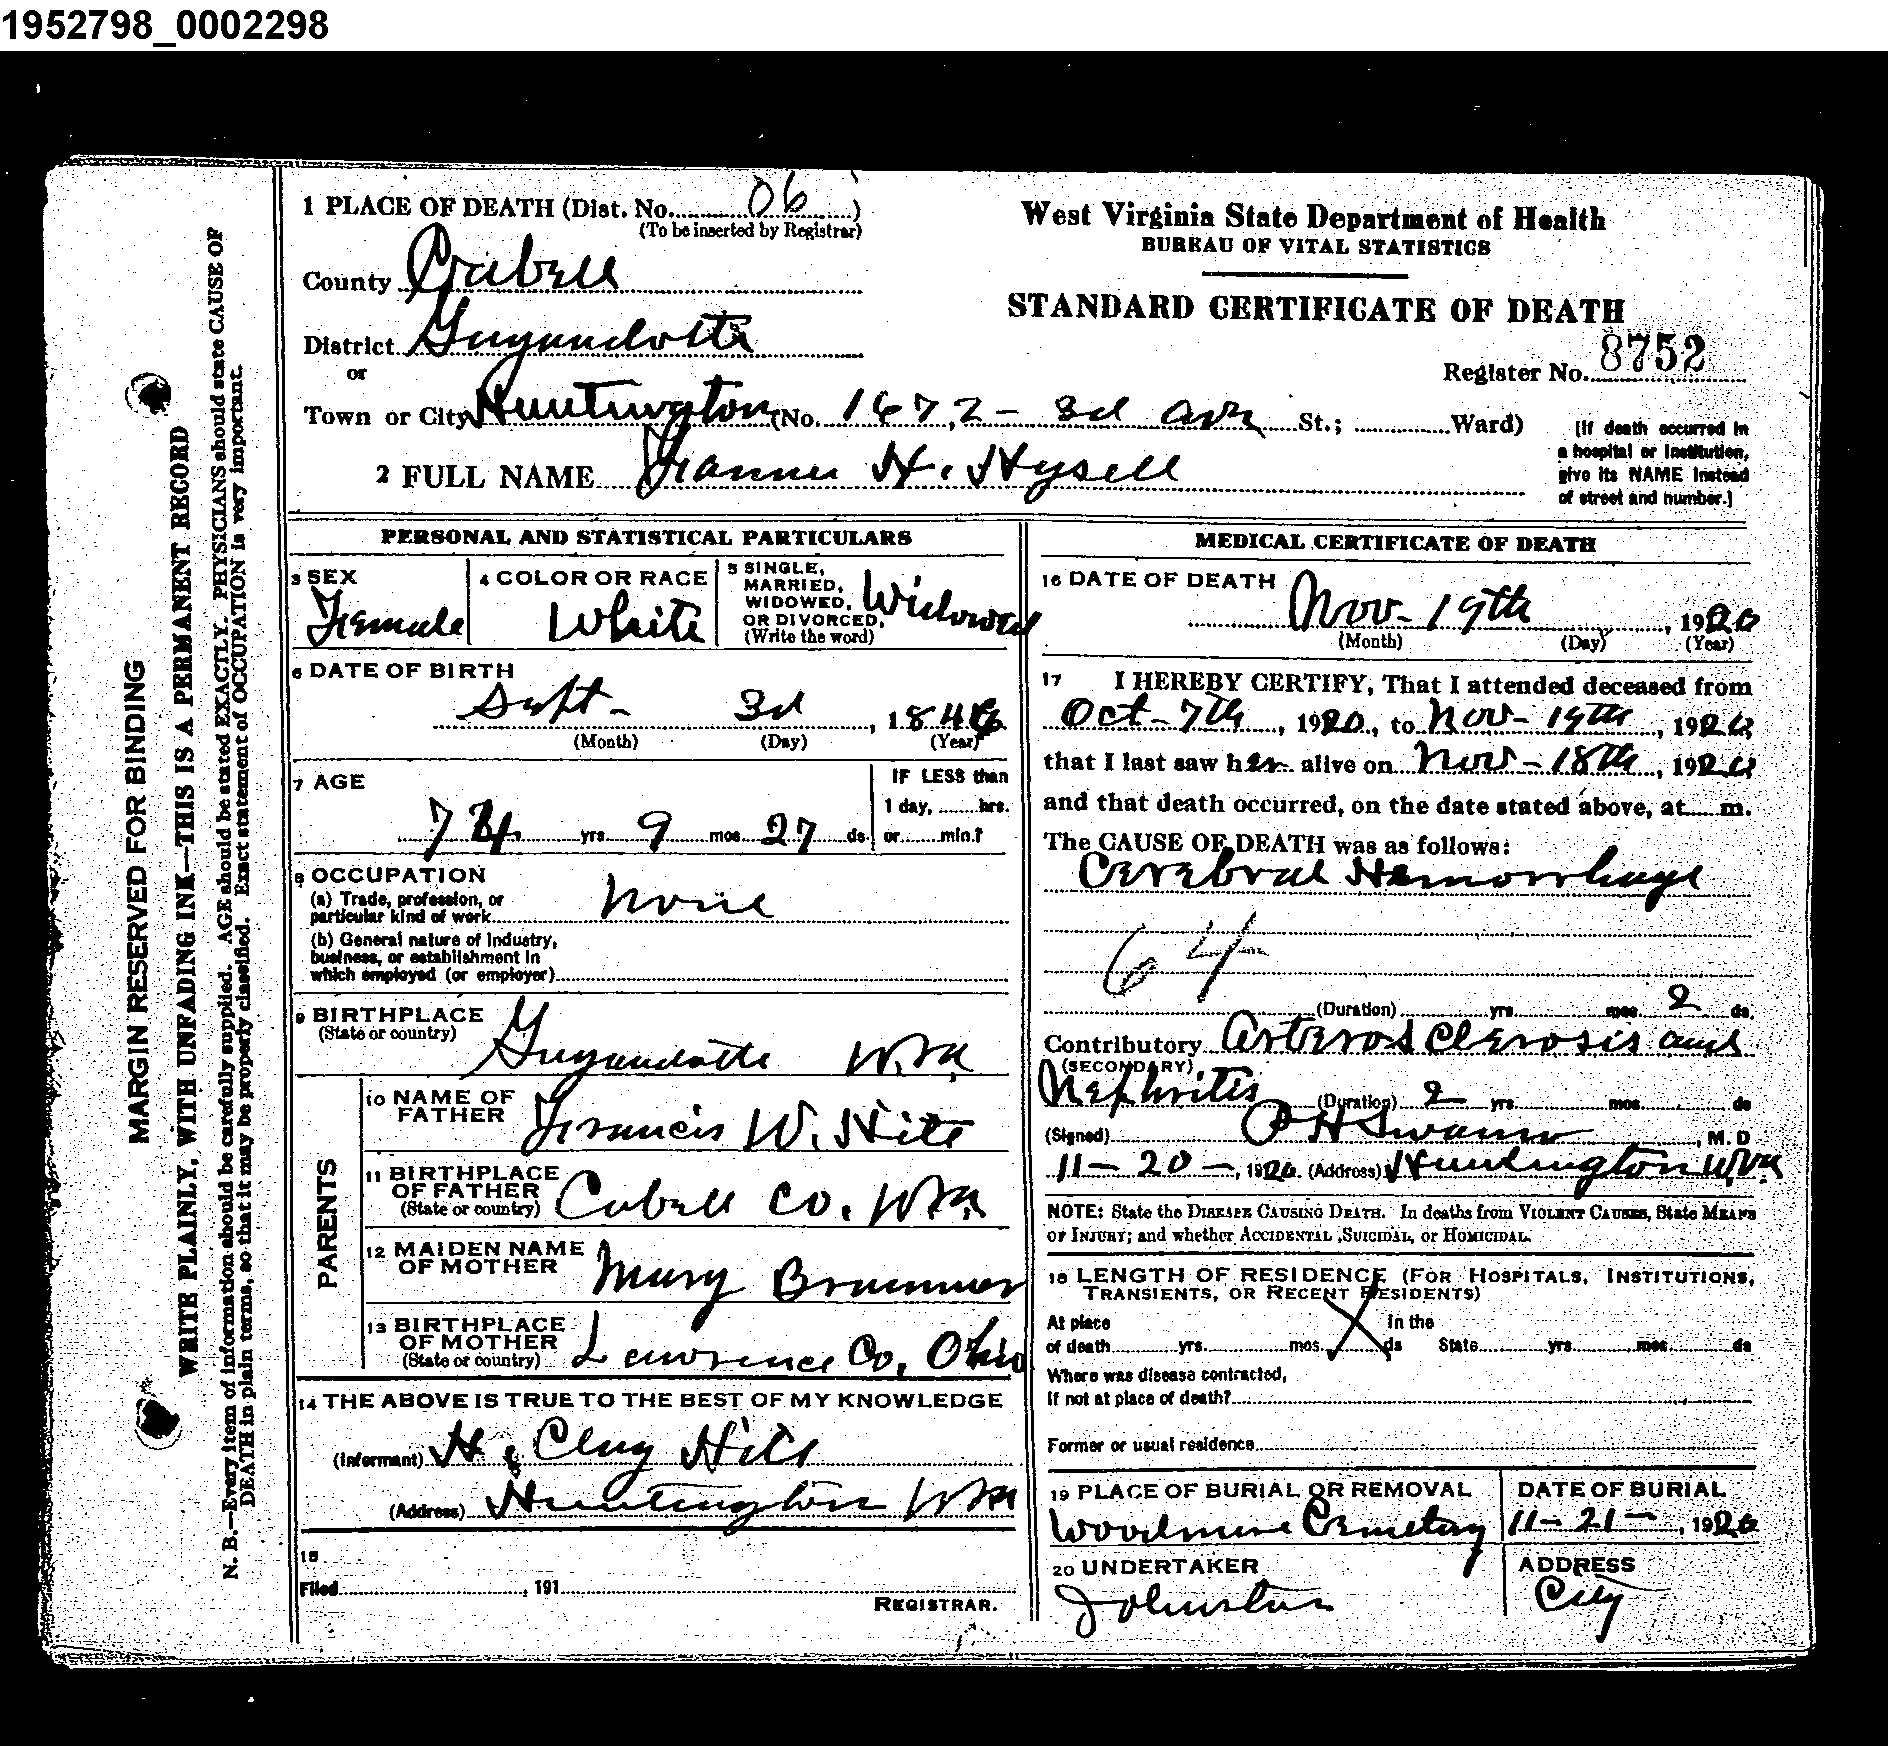 1952798_0002298
1 PLACE OF DEATH (Dist. No. 06 )
(To be inserted by Registrar)
County Cabell
District Guyandotte
or
Town or City Huntington (No. 1672 - 3d Ave St.; Ward)
2 FULL NAME Fannie H. Hysell
West Virginia State Department of Health
BUREAU OF VITAL STATISTICS
STANDARD CERTIFICATE OF DEATH
Register No. 8752
[If death occurred in
a hospital or institution,
give its NAME instead
of street and number.]
PERSONAL AND STATISTICAL PARTICULARS
3 SEX
Female
4 COLOR OR RACE
White
5 SINGLE,
MARRIED,
WIDOWED,
OR DIVORCED,
(Write the word)
Widowed
6 DATE OF BIRTH
Sept - 3d , 1846
(Month) (Day) (Year)
7 AGE
74 yrs 9 mos 27 ds.
IF LESS than
1 day, hrs.
or min.?
8 OCCUPATION
(a) Trade, profession, or
particular kind of work none
(b) General nature of Industry,
business, or establishment in
which employed (or employer)
9 BIRTHPLACE
(State or country)
Guyandotte W.Va
PARENTS
10 NAME OF
FATHER
Francis W. Hite
11 BIRTHPLACE
OF FATHER
(State or country)
Cabell Co. W.Va
12 MAIDEN NAME
OF MOTHER
Mary Brammer
13 BIRTHPLACE
OF MOTHER
(State or country)
Lawrence Co, Ohio
14 THE ABOVE IS TRUE TO THE BEST OF MY KNOWLEDGE
(Informant) H. Clay Hite
(Address) Huntington W Va
15
Filed , 191
REGISTRAR.
MEDICAL CERTIFICATE OF DEATH
16 DATE OF DEATH
Nov - 19th , 1920
(Month) (Day) (Year)
17 I HEREBY CERTIFY, That I attended deceased from
Oct - 7th , 1920, to Nov - 19th , 1920
that I last saw her alive on Nov - 18th , 1920
and that death occurred, on the date stated above, at m.
The CAUSE OF DEATH was as follows:
Cerebral Hemorrhage
64
(Duration) yrs mos 2 ds.
Contributory Arteros Clerosis and
(SECONDARY)
Nephritis (Duration) 2 yrs mos ds
(Signed) P H Swann , M. D
11 - 20 - , 1920 (Address) Huntington W Va
NOTE: State the DISEASE CAUSING DEATH. In deaths from VIOLENT CAUSES, State MEANS
OF INJURY; and whether ACCIDENTAL, SUICIDAL, or HOMICIDAL.
18 LENGTH OF RESIDENCE (FOR HOSPITALS, INSTITUTIONS,
TRANSIENTS, OR RECENT RESIDENTS)
At place In the
of death yrs. mos. ds State yrs mos ds
Where was disease contracted,
If not at place of death?
Former or usual residence
19 PLACE OF BURIAL OR REMOVAL
Woodmere Cemetery
DATE OF BURIAL
11 - 21 - , 1920
20 UNDERTAKER
Johnston
ADDRESS
City
MARGIN RESERVED FOR BINDING
WRITE PLAINLY, WITH UNFADING INK—THIS IS A PERMANENT RECORD
N. B.—Every item of information should be carefully supplied. AGE should be stated EXACTLY. PHYSICIANS should state CAUSE OF
DEATH in plain terms, so that it may be properly classified. Exact statement of OCCUPATION is very important.